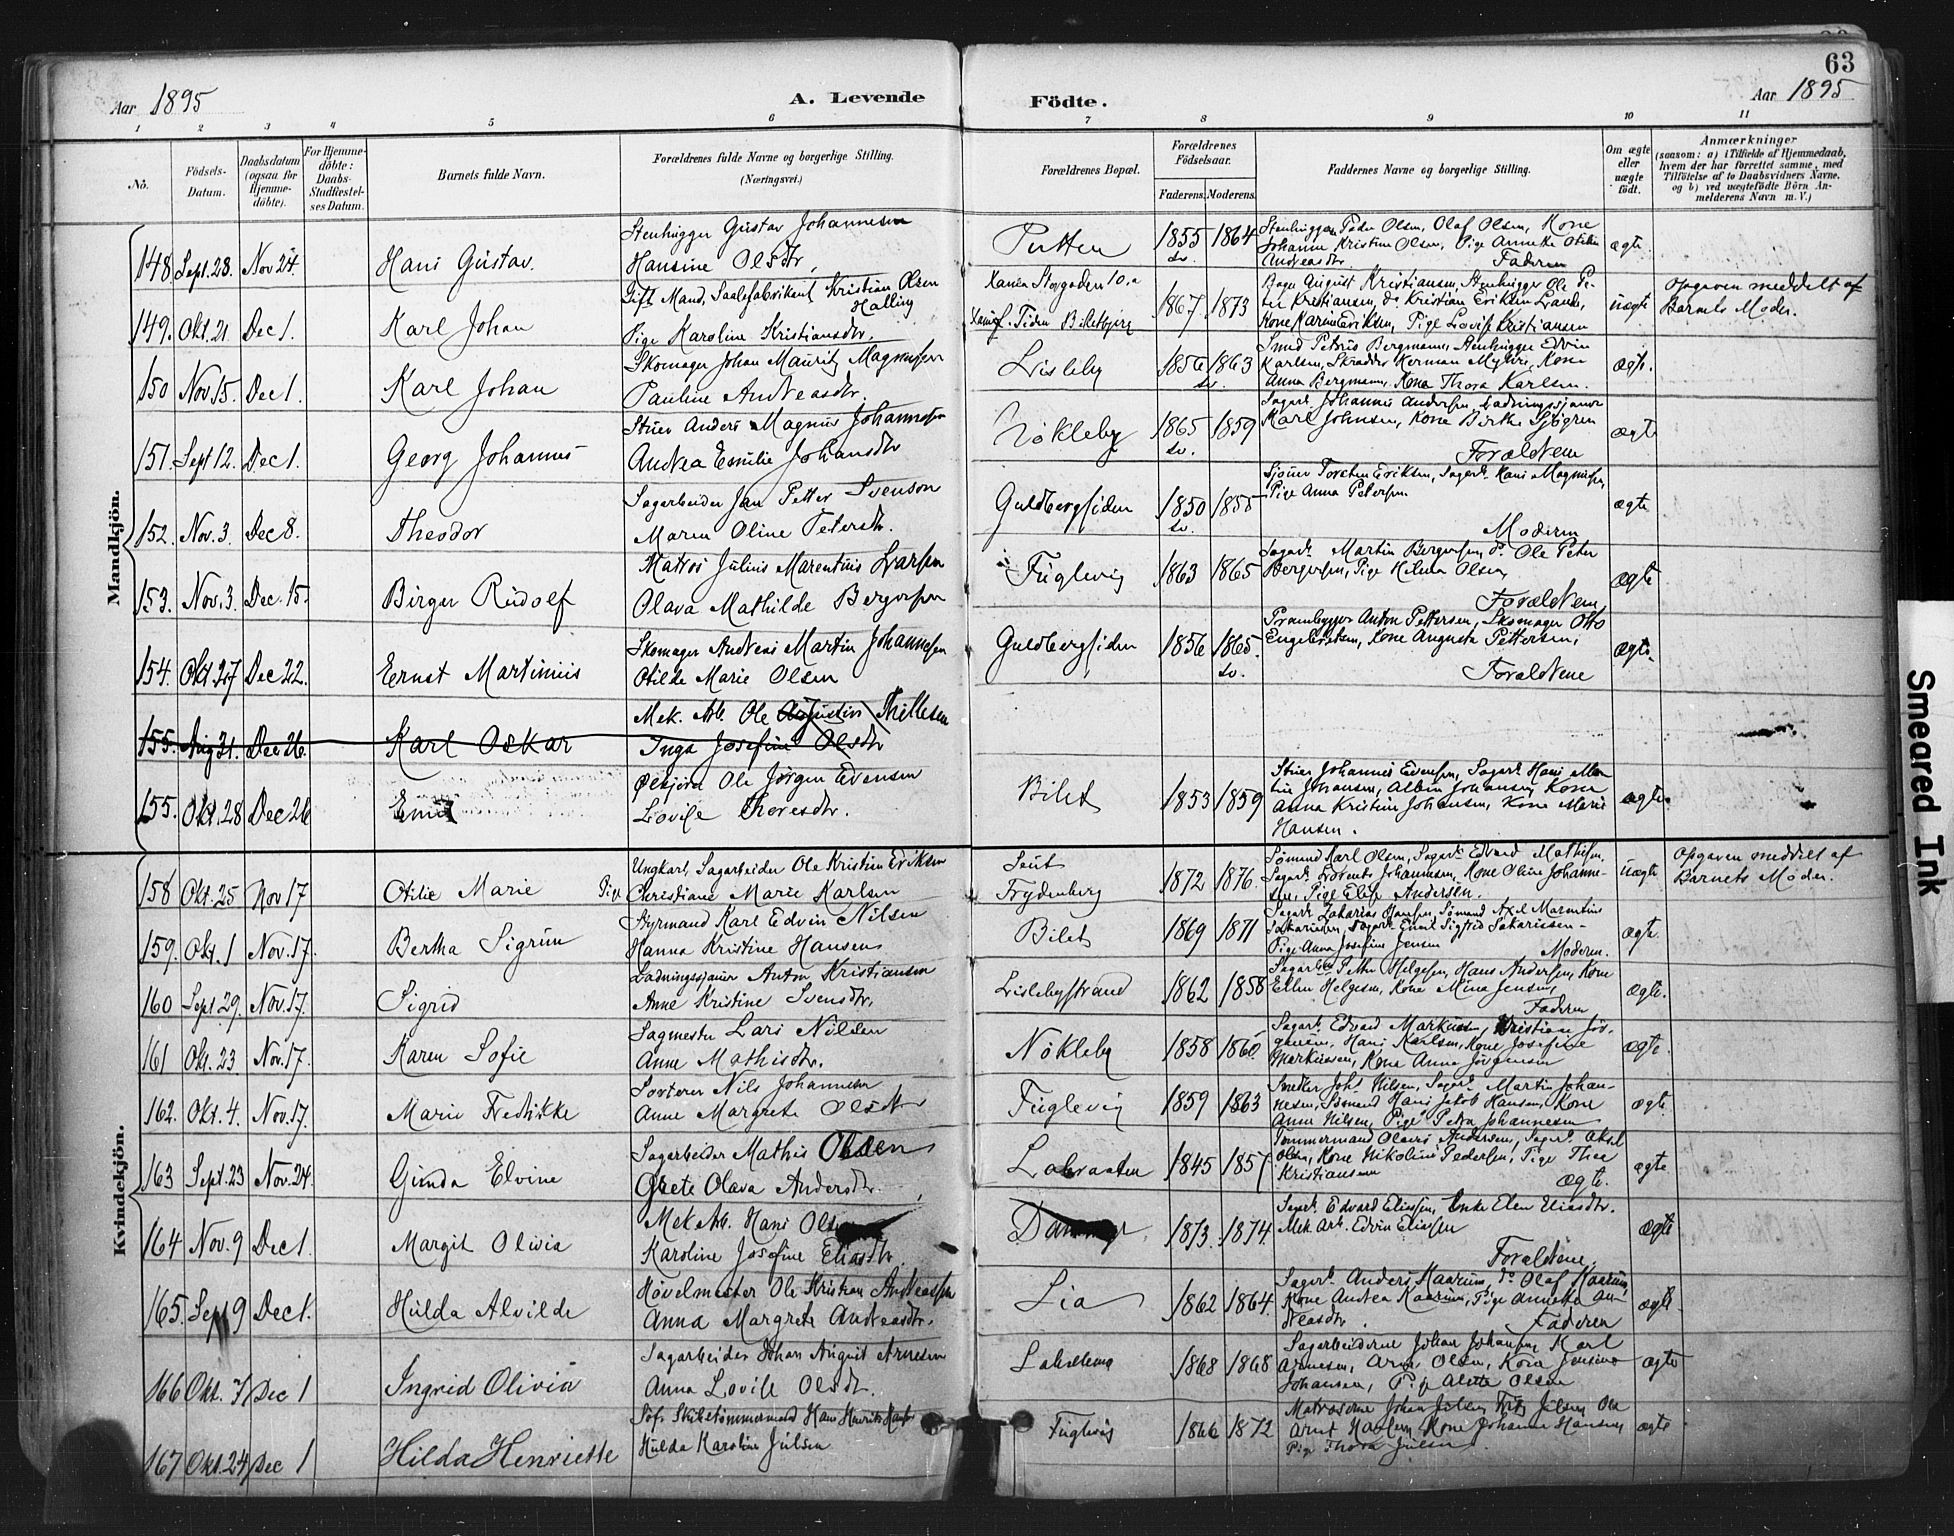 63
Aar 1895 A. Levende Födte. Aar 1895
1 2 3 4 5 6 7 8 9 10 11
No.
Födsels-Datum.
Daabsdatum (ogsaa for Hjemme-döbte).
For Hjemme-döbte: Daabs-Stadfæstel-ses Datum.
Barnets fulde Navn.
Forældrenes fulde Navne og borgerlige Stilling.
(Næringsvei.)
Forældrenes Bopæl.
Forældrenes Födselsaar.
Faderens. Moderens.
Faddernes Navne og borgerlige Stilling.
Om ægte eller uægte födt.
Anmærkninger
(saasom: a) i Tilfælde af Hjemmedaab,
hvem der har forrettet samme, med
Tilföielse af to Daabsvidners Navne,
og b) ved uægtefödte Börn An-
melderens Navn m. V.)
Mandkjön.
148. Sept. 28. Nov 24. Hans Gustav.
Stenhugger Gustav Johannesen
Hansine Olsdtr.
Putten 1855 sv. 1864
Stenhugger Peder Olsen, Olaf Olsen, Kone
Johanne Kristine Olsen, Pige Annette Otilie
Andreasdtr. Faderen
ægte.
149. Okt. 21 Dec 1. Karl Johan
Gift Mand, Kristian Olsen
Halling
Pige Karoline Kristiansdtr.
Storgaden 10.
1867. 1873
August Kristiansen, Stenhugger Ole Pe-
ter Kristiansen, do Kristian Eriksen
Kone Karin Eriksen, Pige Lovise Kristiansen
uægte
Opgaven meddelt af
Barnets Moder.
150 Nov 15. Dec 1. Karl Johan
Skomager Johan Mauritz Magnussen
Pauline Andreasdtr.
Lisleby 1856 sv. 1863
Smed Petrus Bergmann, Stenhugger Edvin
Karlsen, Skrædder Herman Myhre, Kone
Anna Bergmann, Kone Thora Karlsen.
ægte.
151. Sept 12. Dec 1. Georg Johannes
Stuer Anders Magnus Johannesen
Andrea Emilie Johansdtr
Nökleby 1865 sv. 1859
Sagarb. Johannes Andersen, Ladningssjouer
Karl Johnsen, Kone Birthe Sjögren
Forældrene
ægte
152. Nov. 3. Dec 8. Theodor
Sagarbeider Jan Petter Svenson
Maren Oline Petersdtr.
Guldbergsiden 1850 sv. 1855
Sjouer Torsten Eriksen, Sagarb. Hans Magnussen,
Pige Anna Petersen
Moderen
ægte
153. Nov. 3. Dec. 15. Birger Rudolf
Matros Julius Marentius Larsen
Olava Mathilde Bergersen
Fuglevig 1863 1865
Sagarb. Martin Bergersen, do Ole Peter
Bergersen, Pige Helma Olsen,
Forældrene
ægte
154. Okt. 27 Dec 22. Ernst Martinius
Skomager Andreas Martin Johannesen
Otilde Marie Olsen
Guldbergsiden 1856 1865. sv.
Prambygger Anton Pettersen, Skomager Otto
Engebretsen, Kone Augusta Pettersen,
Forældrene
ægte.
155. Aug 31. Dec 26. Karl Oskar
Mek. Arb. Ole Augustin Thillesen
Inga Josefine Olsdtr
155. Okt. 28 Dec 26 Emil
Ole Jörgen Evensen
Lovise Thoresdtr.
Bilet 1853 1859
Stuer Johannes Evensen, Sagarb. Hans Mar-
tin Johansen, Albin Johansen, Kone
Anna Kristine Johansen, Kone Marie
Hansen.
ægte.
Kvindekjön.
158 Okt. 25 Nov 17 Otilie Marie
Ungkarl, Sagarbeider Ole Kristian Eriksen
Pige Christiane Marie Karlsen
Seut
Frydenberg 1872 1876.
Sömand Karl Olsen, Sagarb. Edvard Mathisen,
Sagarb. Lorents Johannesen, Kone Oline Johanne-
sen, Pige Elise Andersen.
uægte
Opgaven meddelt af
Barnets Moder.
159. Okt. 1 Nov. 17. Bertha Sigrun
Styrmand Karl Edvin Nilsen
Hanna Kristine Hansen
Bilet 1869 1871
Sagarb. Zakarias Hansen, Sömand Axel Marentius
Sakariasen, Sagarb. Emil Sigfred Sakariasen
Pige Anna Josefine Jensen
Moderen.
ægte.
160 Sept 29. Nov. 17. Sigrid
Ladningssjouer Anton Kristiansen
Anne Kristine Svensdtr.
Lislebystrand 1862 1858
Sagarb. Petter Helgesen, Hans Andersen, Kone
Ellen Helgesen, Kone Mina Jensen,
Faderen
ægte.
161 Okt. 23 Nov. 17. Karen Sofie
Sagmester Lars Nilsen
Anne Mathisdtr.
Nökleby 1858 1860
Sagarb. Edvard Markusen, Kristian Jör-
gensen, Hans Karlsen, Kone Josefine
Markussen, Kone Anna Jörgensen
ægte.
162. Okt. 4. Nov. 17. Marie Fredrikke
Sorterer Nils Johannesen
Anne Margrete Olsdtr
Fuglevig 1859 1863
Snedker Johs Nilsen, Sagarb. Martin Johan-
nesen, Sömand Hans Jakob Hansen, Kone
Anne Nilsen, Pige Petra Johannesen
ægte.
163 Sept. 23 Nov. 24. Gunda Elvine
Sagarbeider Mathis Olsen
Grete Olava Andersdtr.
Labraaten 1845 1857
Tömmermand Olaus Andersen, Sagarb. Aksel
Olsen, Kone Nikoline Pedersen, Pige Thea
Kristiansen
ægte.
ægte
164 Nov. 9 Dec 1. Margit Olivia
Mek Arb. Hans Olsen
Karoline Josefine Eliasdtr.
1873. 1874
Sagarb. Edvard Eliassen, Enke Elen Eliasdtr.
Mek Arb. Edvin Eliassen
Forældrene.
ægte
165. Sept 9 Dec 1. Hulda Alvilde
Hövelmester Ole Kristian Andreassen
Anna Margrete Andreasdtr.
Lia 1862 1864.
Sagarb. Anders Kaarum, do Olaf Kaarum,
Kone Andrea Kaarum, Pige Annette An-
dreasdtr. Faderen
ægte.
166 Okt. 7 Dec 1 Ingrid Olivia
Sagarbeider Johan August Arnesen
Anna Lovise Olsdtr.
1868 1868
Sagarbeiderne Johan Johansen, Karl
Arnesen, Arne Olsen, Kone Jensine
Johansen, Pige Alette Olsen
ægte
167 Okt. 24 Dec 1 Hilda Henriette
Hans Henrik Hansen
Hulda Karoline Julsen
Fuglevig 1866 1872
Matroserne Johan Julsen, Fritz Julsen, Ole
Arnt Karlsen, Kone Johanne Hansen,
Pige Thora Julsen
ægte
Smeared Ink